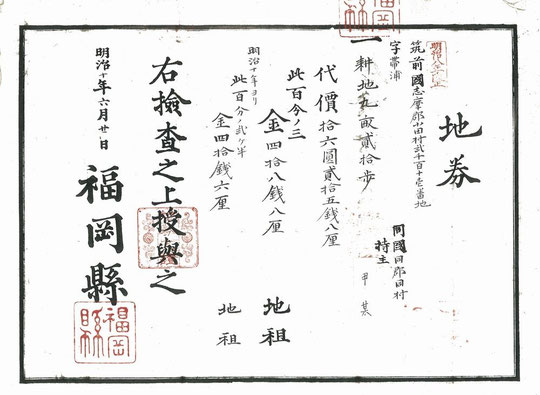 地券
明治八年改正
筑前國志摩郡小田村貳千百十壱番地
字帯浦
同國同郡同村
持主 甲某
一耕地九畝貳拾歩
代價拾六圓貳拾五銭八厘
此百分ノ三
金四拾八銭八厘 地租
明治十年ヨリ
此百分ノ貳ケ半
金四拾銭六厘 地租
右撿査之上授與之
明治十年六月廿日
福岡縣
福岡縣